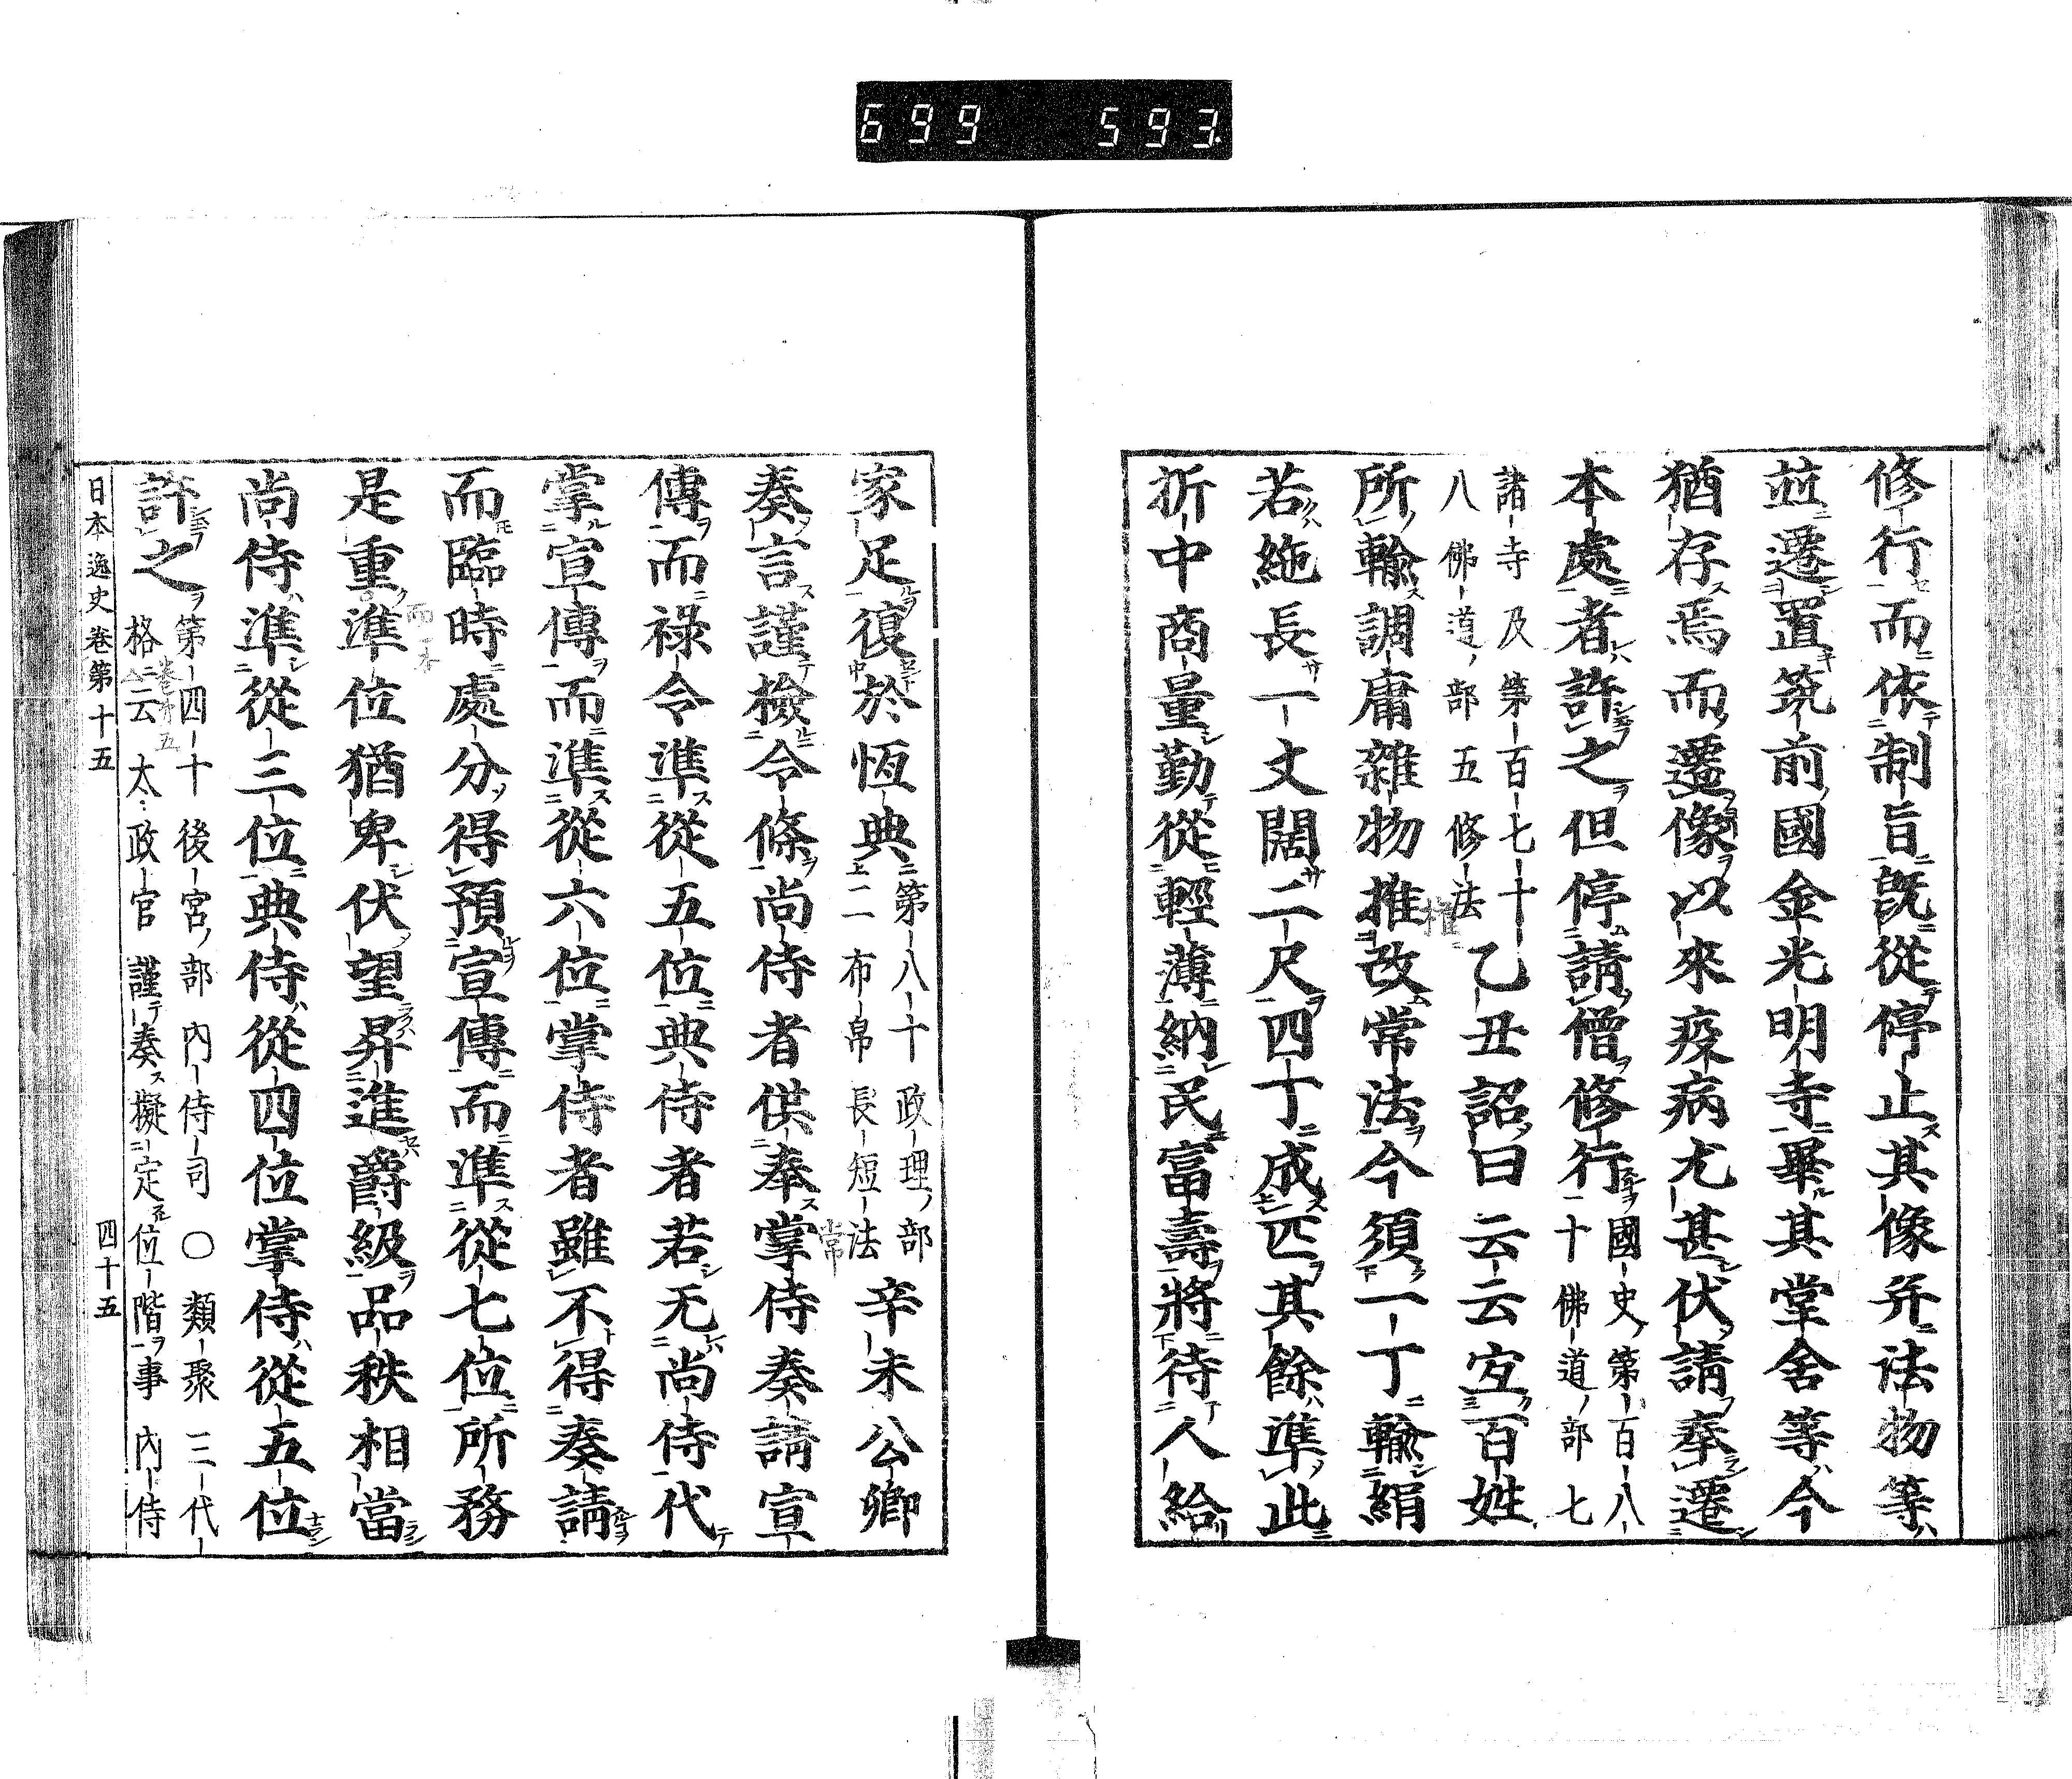 699 593
修行而依制旨既從停止其像并法物等
並遷置筑前國金光明寺畢其堂舍等今
猶存焉而遷像以來疫病尤甚伏請奉遷
本處者許之但停請僧修行國史第百八十佛道部七
諸寺及第百七十八佛道部五修法乙丑詔曰云云宜百姓
所輸調庸雜物推改常法今須一丁輸絹
若絁長一丈闊二尺四丁成匹其餘準此
折中商量勤從輕薄納民富壽將待人給
家足復於恆典第八十政理部二布帛長短法辛未公卿
奏言謹檢令條尚侍者供奉掌侍奏請宣
傳而祿令準從五位典侍者若无尚侍代
掌宣傳而準從六位掌侍者雖不得奏請
而臨時處分得預宣傳而準從七位所務
是重準位猶卑伏望昇進爵級品秩相當
尚侍準從三位典侍從四位掌侍從五位
許之第四十後宮部內侍司○類聚三代格云太政官謹奏擬定位階事內侍
日本逸史卷第十五 四十五